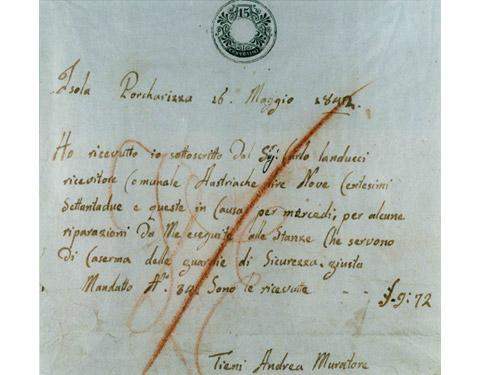 15
CENTESIMI
Isola Porcharizza 26. Maggio 1842.
Ho ricevutto io sottoscritto dal Sig: Carlo Landucci
ricevitore Comunale Austriache lire Nove Centesimi
Settantadue e queste in Causa per mercedi, per alcune
riparazioni da Me eseguite alle Stanze che servono
di Caserma delle guardie di Sicurezza, giusta
Mandatto 34. Sono le ricevutte - - 9:72
Tieni Andrea Muratore